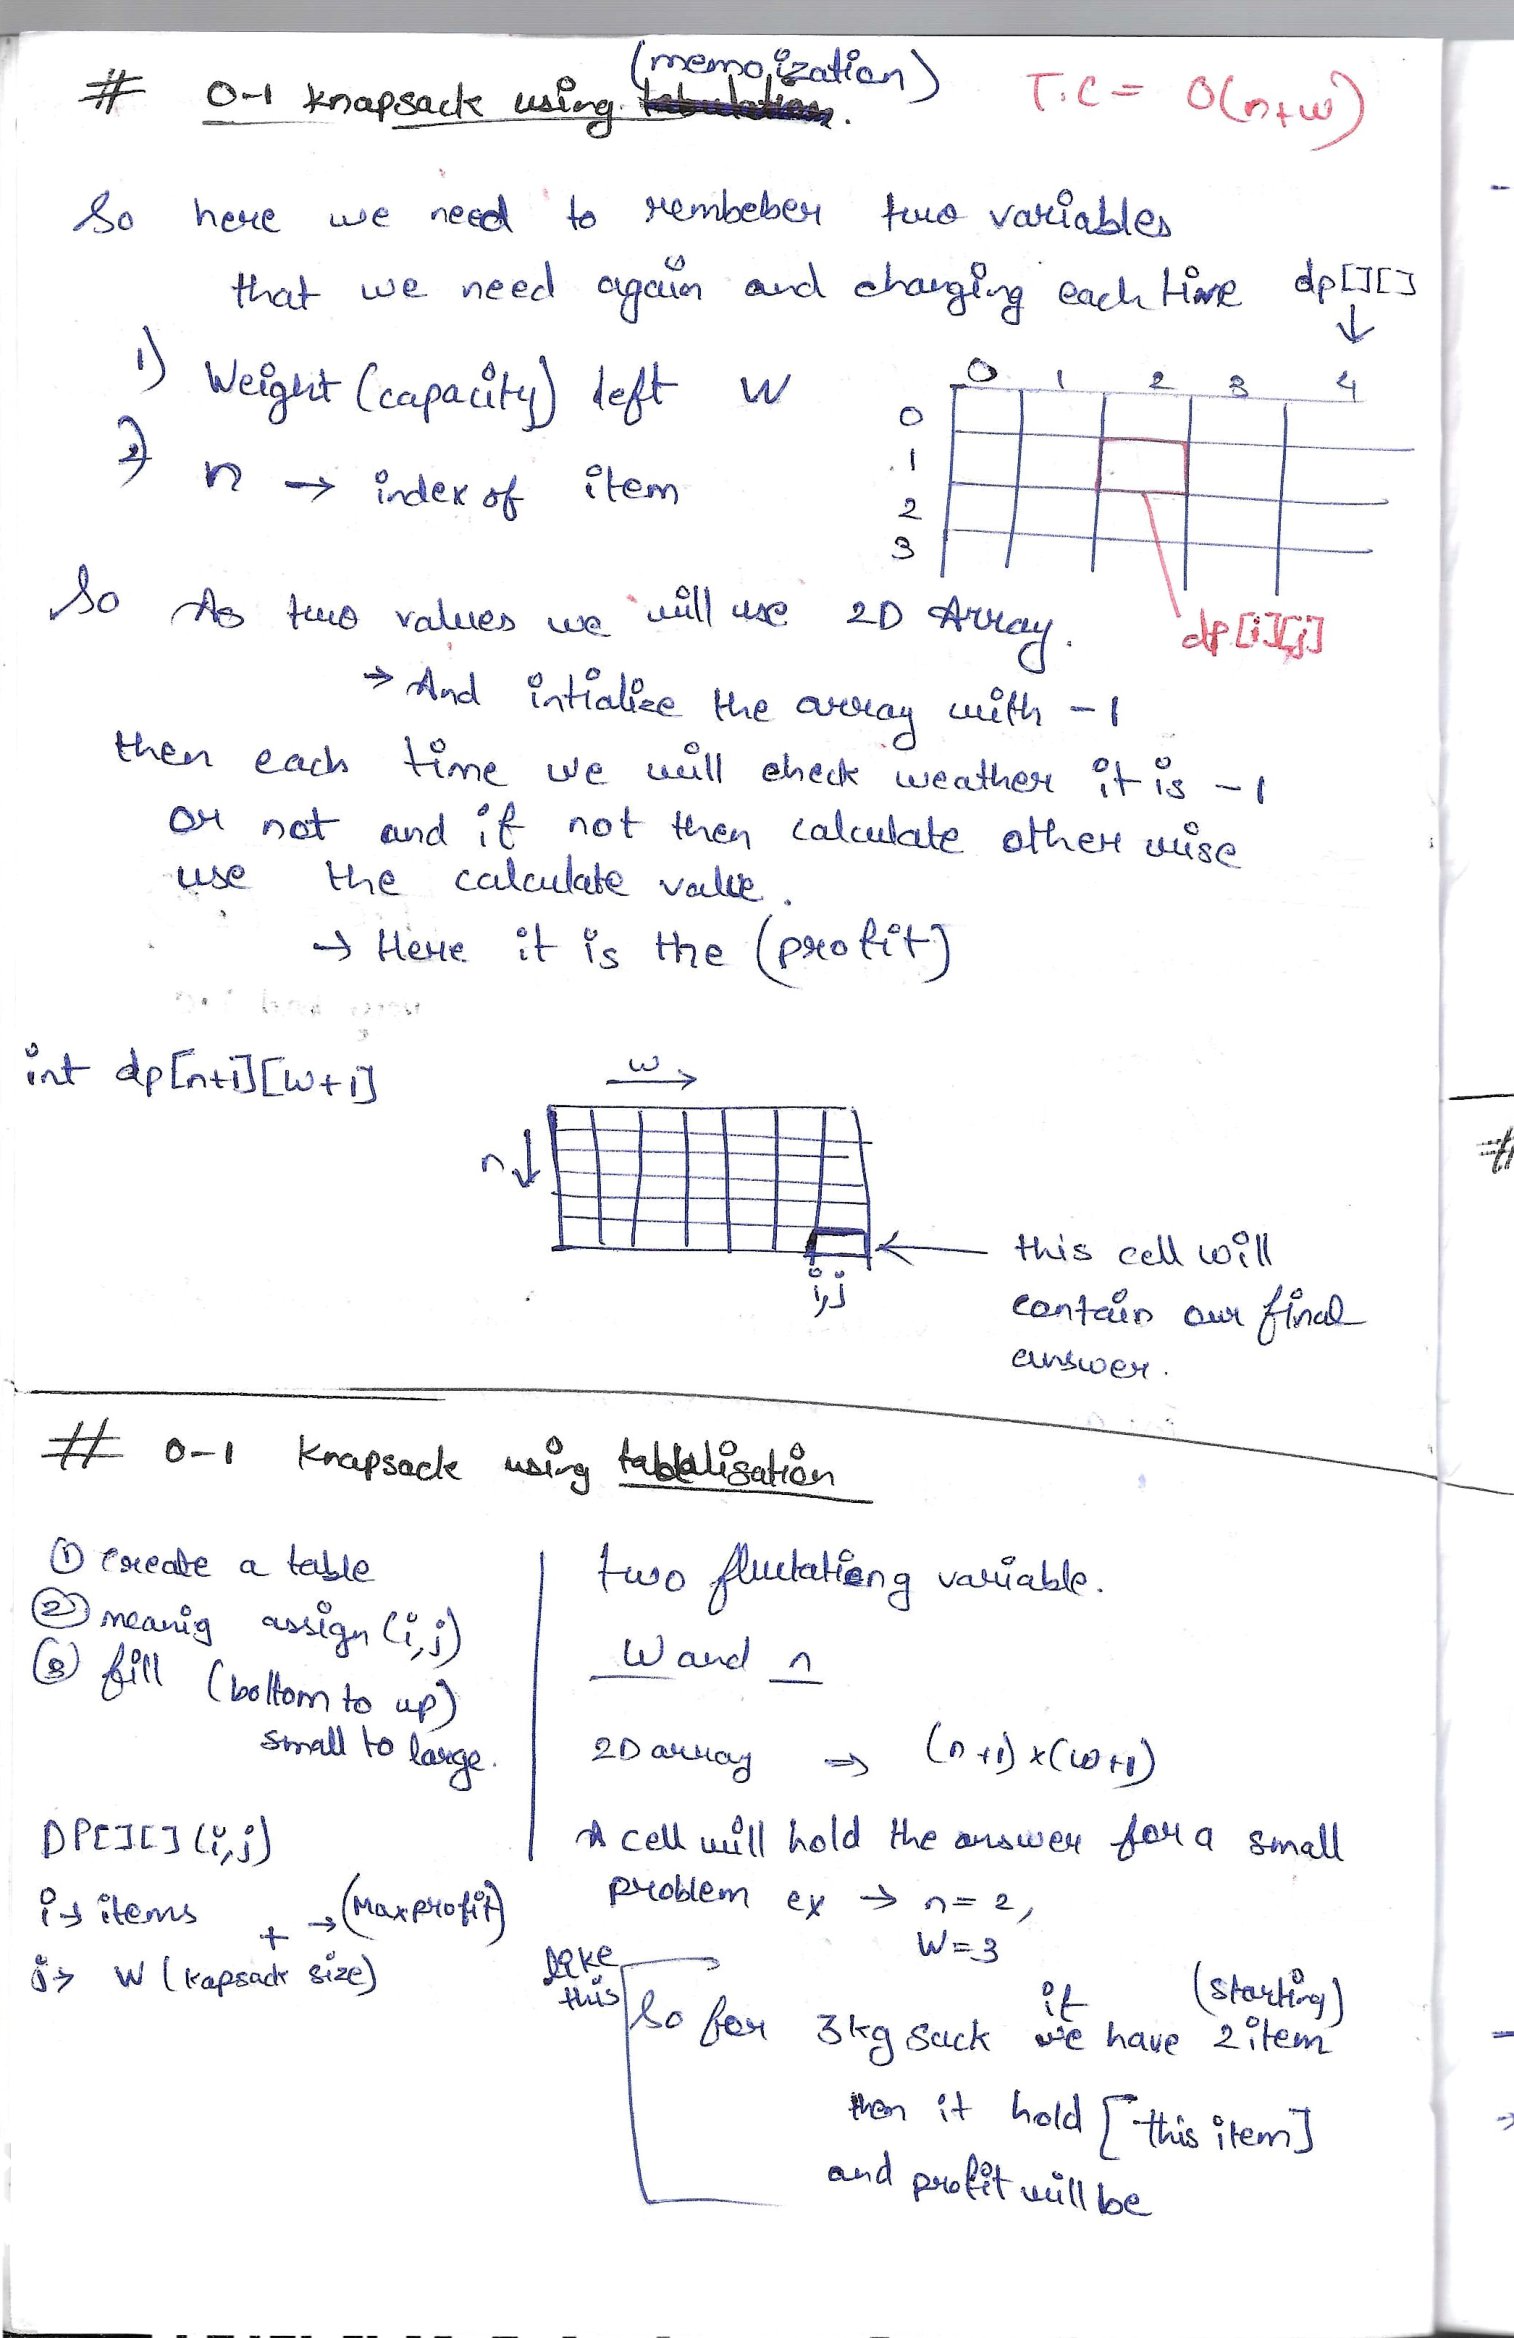 (memoization)
# 0-1 knapsack using tabulation. T.C = O(n+w)
So here we need to rembeber two variables
that we need again and changing each time dp[][]
↓
1) Weight (capacity) left W
2) n → index of item
0 1 2 3 4
0
1
2
3
dp[i][j]
So As two values we will use 2D Array.
→ And intialize the array with -1
then each time we will check weather it is -1
or not and if not then calculate other wise
use the calculate value.
→ Here it is the (profit)
int dp[n+1][W+1]
w →
n ↓
i,j
this cell will
contain our final
answer.
# 0-1 Knapsack using tabulisation
① create a table
② meanig assign (i,j)
③ fill (bottom to up)
small to large.
DP[][] (i,j)
i → items
+ → (Maxprofit)
j → W (kapsack size)
two fluctationg variable.
W and n
2D array ⇒ (n+1) x (w+1)
A cell will hold the answer for a small
problem ex → n = 2,
W = 3
like
this
So for 3kg sack if we have 2 item (starting)
then it hold [this item]
and profit will be